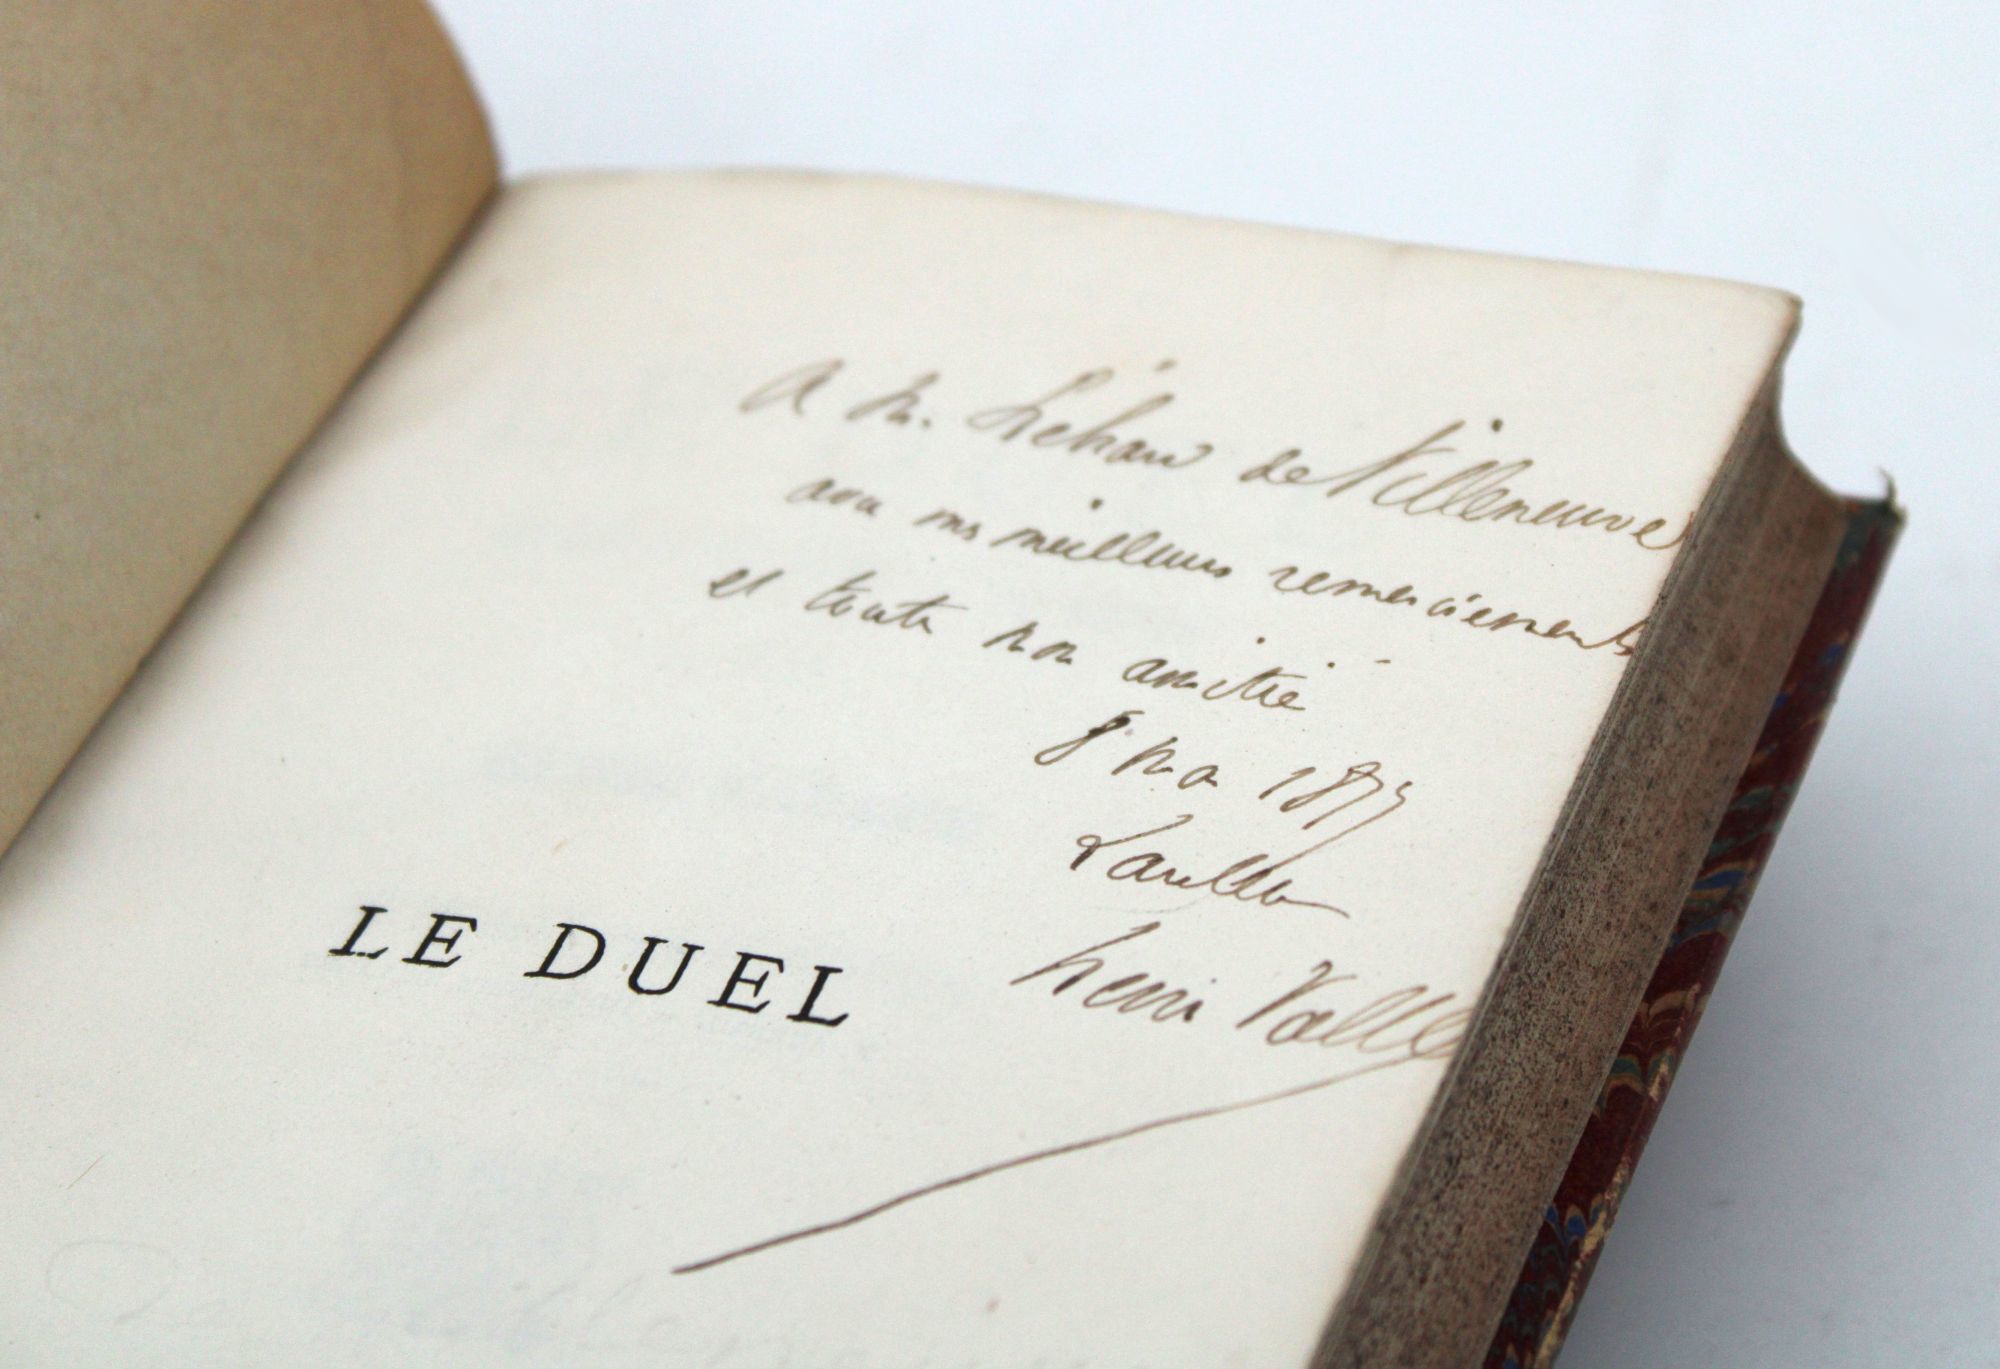 A M.              de Villeneuve
avec mes meilleurs remerciements
et toute mon amitié
8        187
Henri Vallée
LE DUEL